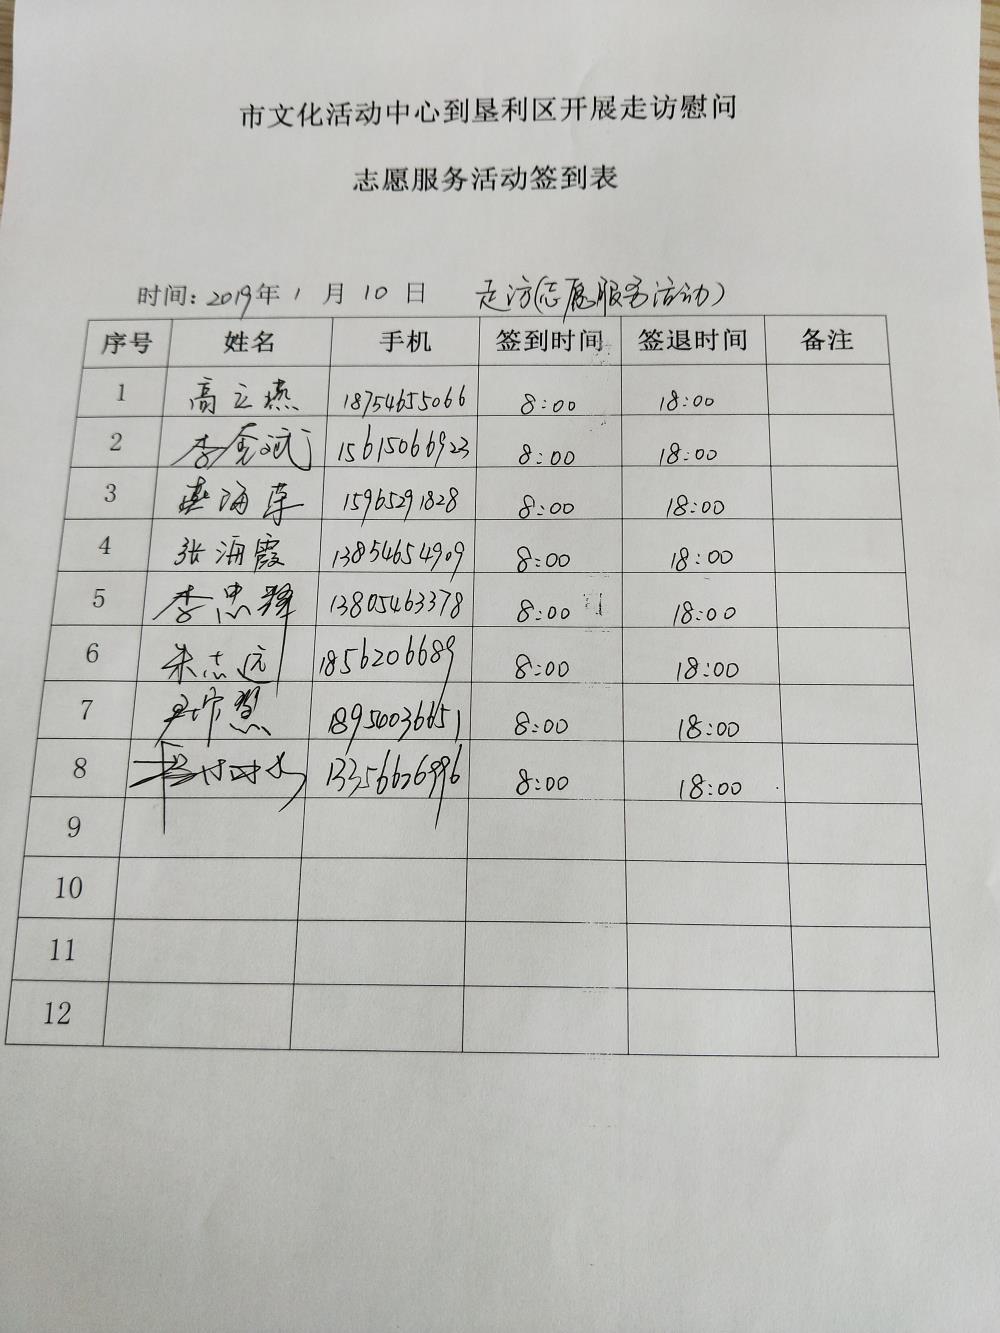 市文化活动中心到垦利区开展走访慰问
志愿服务活动签到表
时间：2019年 1 月 10 日 走访(志愿服务活动)
序号 姓名 手机 签到时间 签退时间 备注
1 高立燕 18754655066 8:00 18:00
2 李金斌 15615066923 8:00 18:00
3 燕海苹 15965291828 8:00 18:00
4 张海霞 13854654909 8:00 18:00
5 李忠释 13805463378 8:00 18:00
6 朱志远 1856206689 8:00 18:00
7 18950036651 8:00 18:00
8 13356626996 8:00 18:00
9
10
11
12